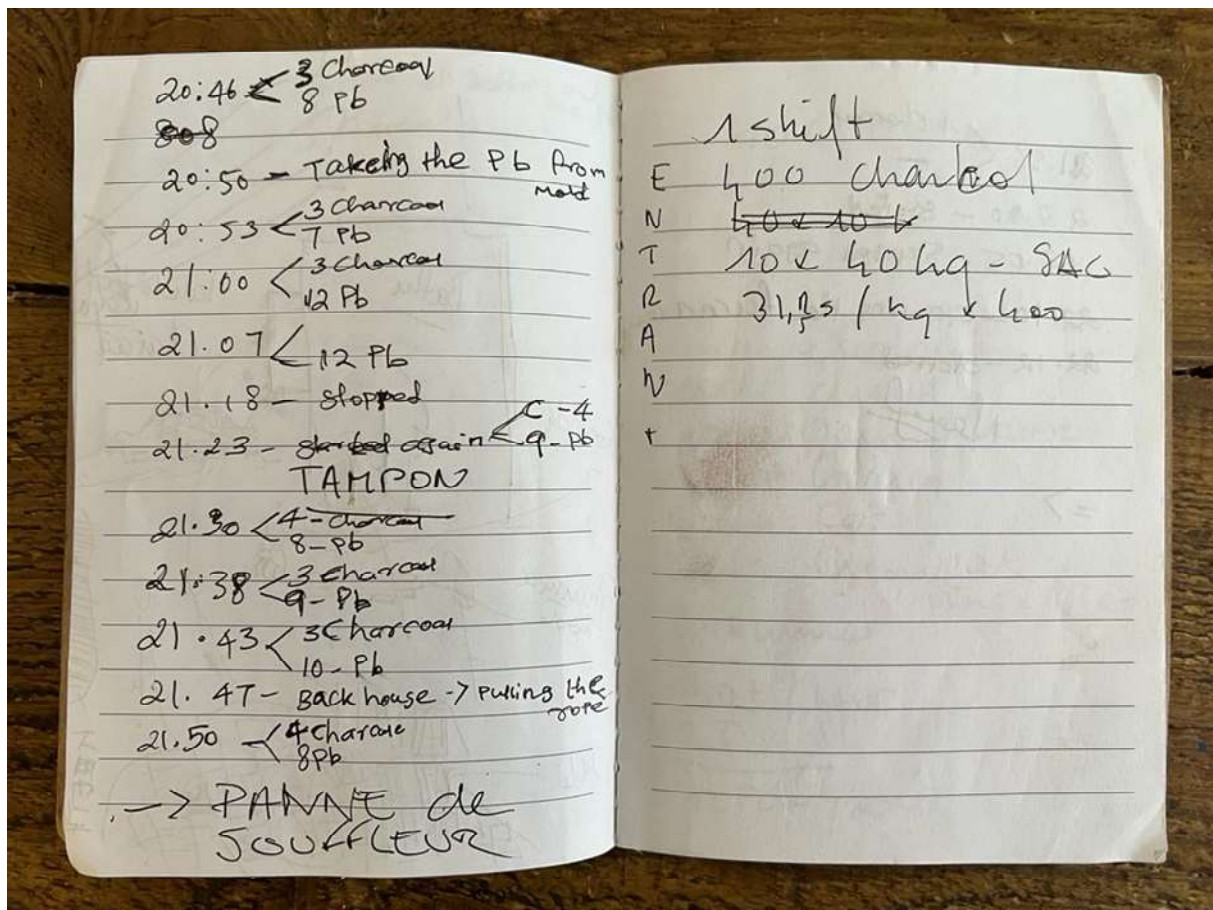 20:46 < 3 Charcoal
8 Pb
808
20:50 - Takeing the Pb from
mold
20:53 < 3 Charcoal
7 Pb
21:00 < 3 Charcoal
12 Pb
21.07 <
12 Pb
21.18 - stopped
21.23 - started again < C - 4
9 - Pb
TAMPON
21.30 < 4 - charcoal
8 - Pb
21:38 < 3 charcoal
9 - Pb
21.43 < 3 Charcoal
10 - Pb
21.47 - Back house -> pulling the
rope
21.50 - < 4 Charcoal
8 Pb
-> PANNE de
SOUFFLEUR
1 shift
400 charbol
40 x 10 k
10 x 40 kg - SAC
31, / kg x 400
E
N
T
R
A
N
T